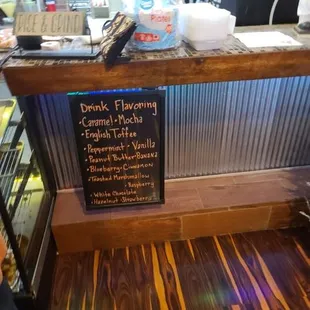 RISE & GRIND
Drink Flavoring
• Caramel • Mocha
• English Toffee
• Peppermint • Vanilla
• Peanut Butter • Banana
• Blueberry • Cinnamon
• Toasted Marshmallow
• Raspberry
• White Chocolate
• Hazelnut • Strawberry